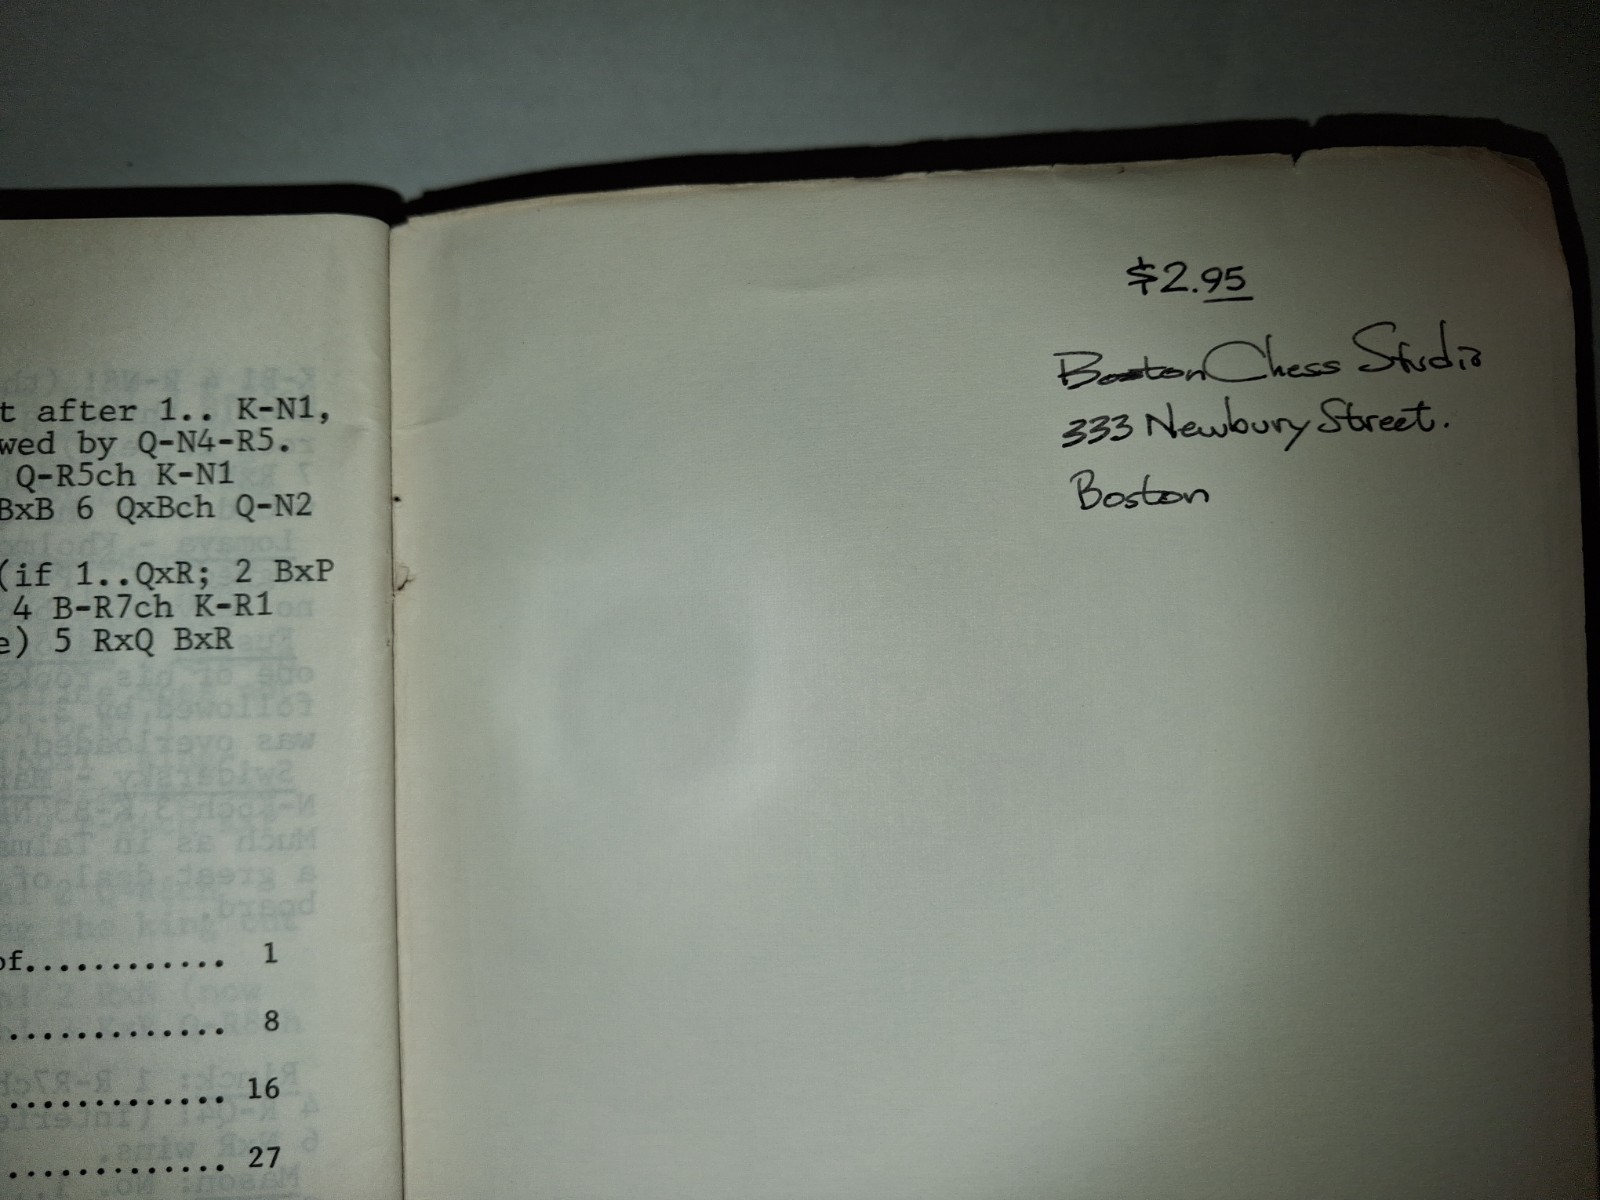 t after 1.. K-N1,
wed by Q-N4-R5.
Q-R5ch K-N1
BxB 6 QxBch Q-N2
(if 1..QxR; 2 BxP
4 B-R7ch K-R1
e) 5 RxQ BxR
of............ 1
............. 8
............. 16
............. 27
$2.95
Boston Chess Studio
333 Newbury Street.
Boston